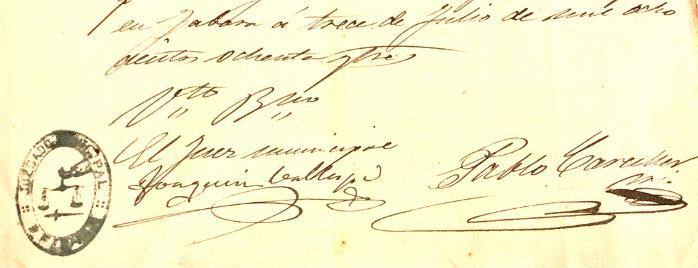 en Fabara á trece de Julio de mil ocho
cientos ochenta y tres
Vto Bno
El Juez municipal
Joaquin
Pablo
JUZGADO MUNICIPAL